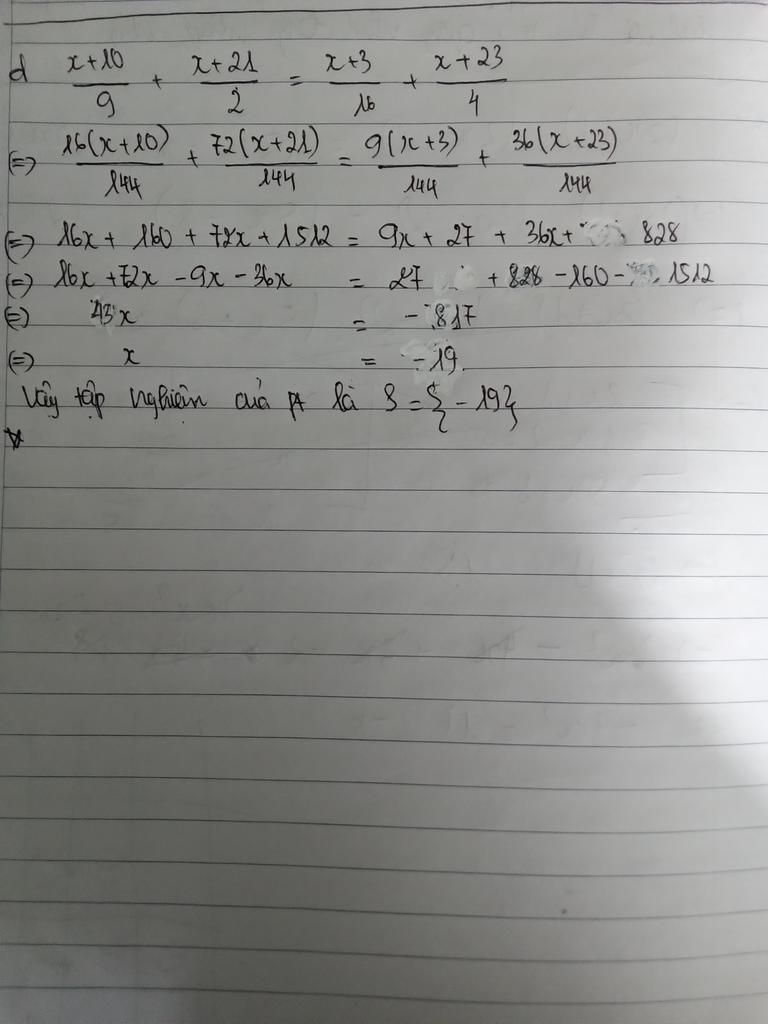 d x+10/9 + x+21/2 = x+3/16 + x+23/4
(=) 16(x+10)/144 + 72(x+21)/144 = 9(x+3)/144 + 36(x+23)/144
(=) 16x + 160 + 72x + 1512 = 9x + 27 + 36x + 828
(=) 16x + 72x - 9x - 36x = 27 + 828 - 160 - 1512
(=) 43x = - 817
(=) x = -19.
Vậy tập nghiệm của pt là S = {-19}